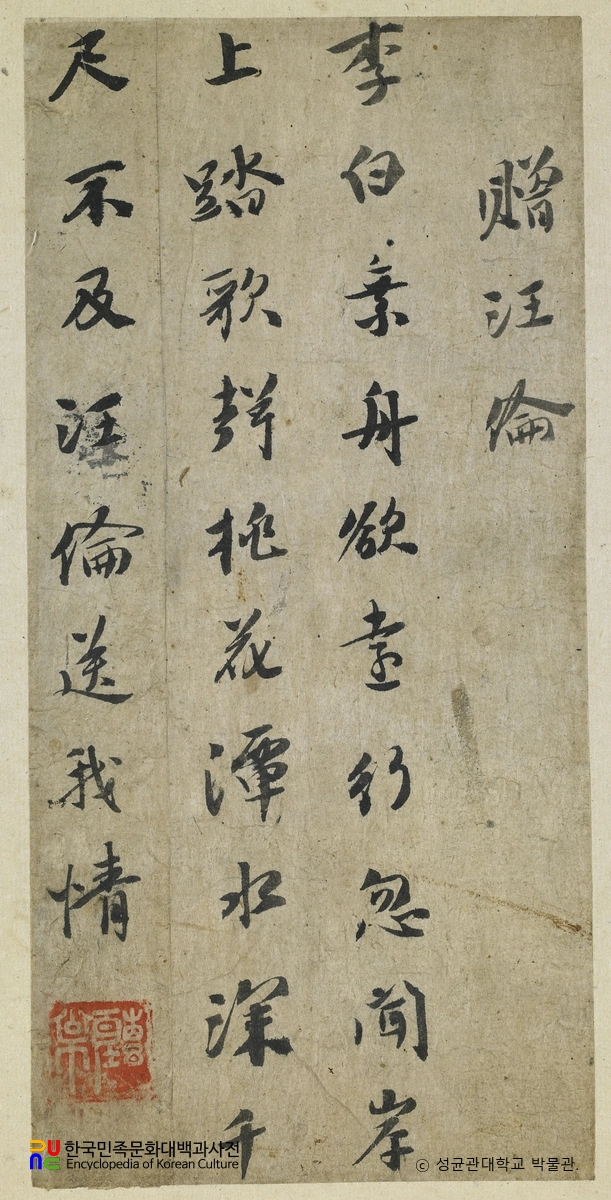 贈汪倫
李白乘舟欲遠行忽聞岸
上踏歌聲桃花潭水深千
尺不及汪倫送我情
한국민족문화대백과사전
Encyclopedia of Korean Culture
© 성균관대학교 박물관.